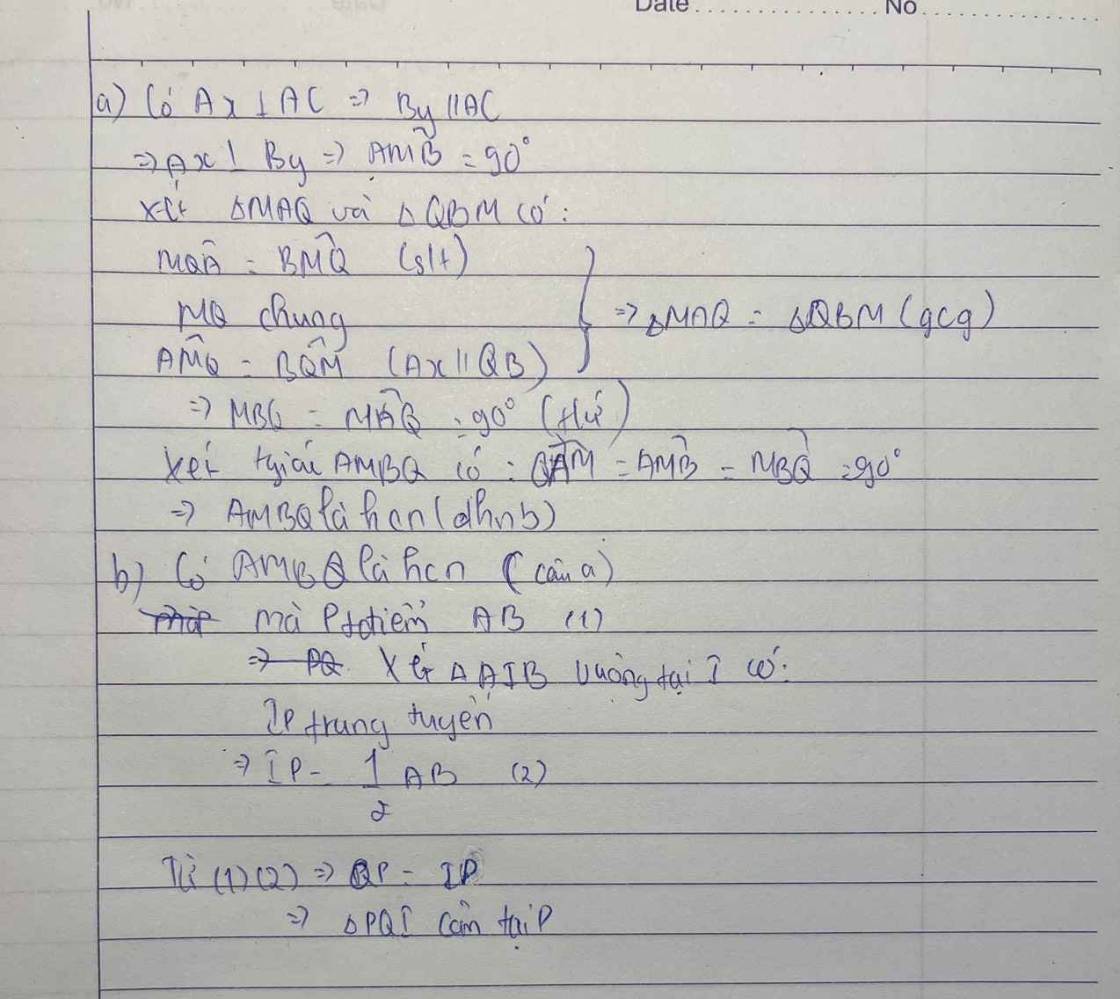 Date No
a) Có Ax ⊥ AC => By // AC
=> Ax ⊥ By => AMB̂ = 90°
xét ΔMAQ và ΔQBM có:
MQÂ = BMQ̂ (slt)
MQ chung => ΔMAQ = ΔQBM (gcg)
AM̂Q = BQ̂M (Ax // QB)
=> MBQ = MÂQ = 90° (tứ)
xét tgiác AMBQ có: QÂM = AM̂B = MB̂Q = 90°
=> AMBQ là hcn (dhnb)
b) Có AMBQ là hcn (câu a)
mà P tđiểm AB (1)
=> PQ Xét ΔAIB vuông tại I có:
IP trung tuyến
=> IP = 1/2 AB (2)
Từ (1) (2) => QP = IP
=> ΔPQI cân tại P